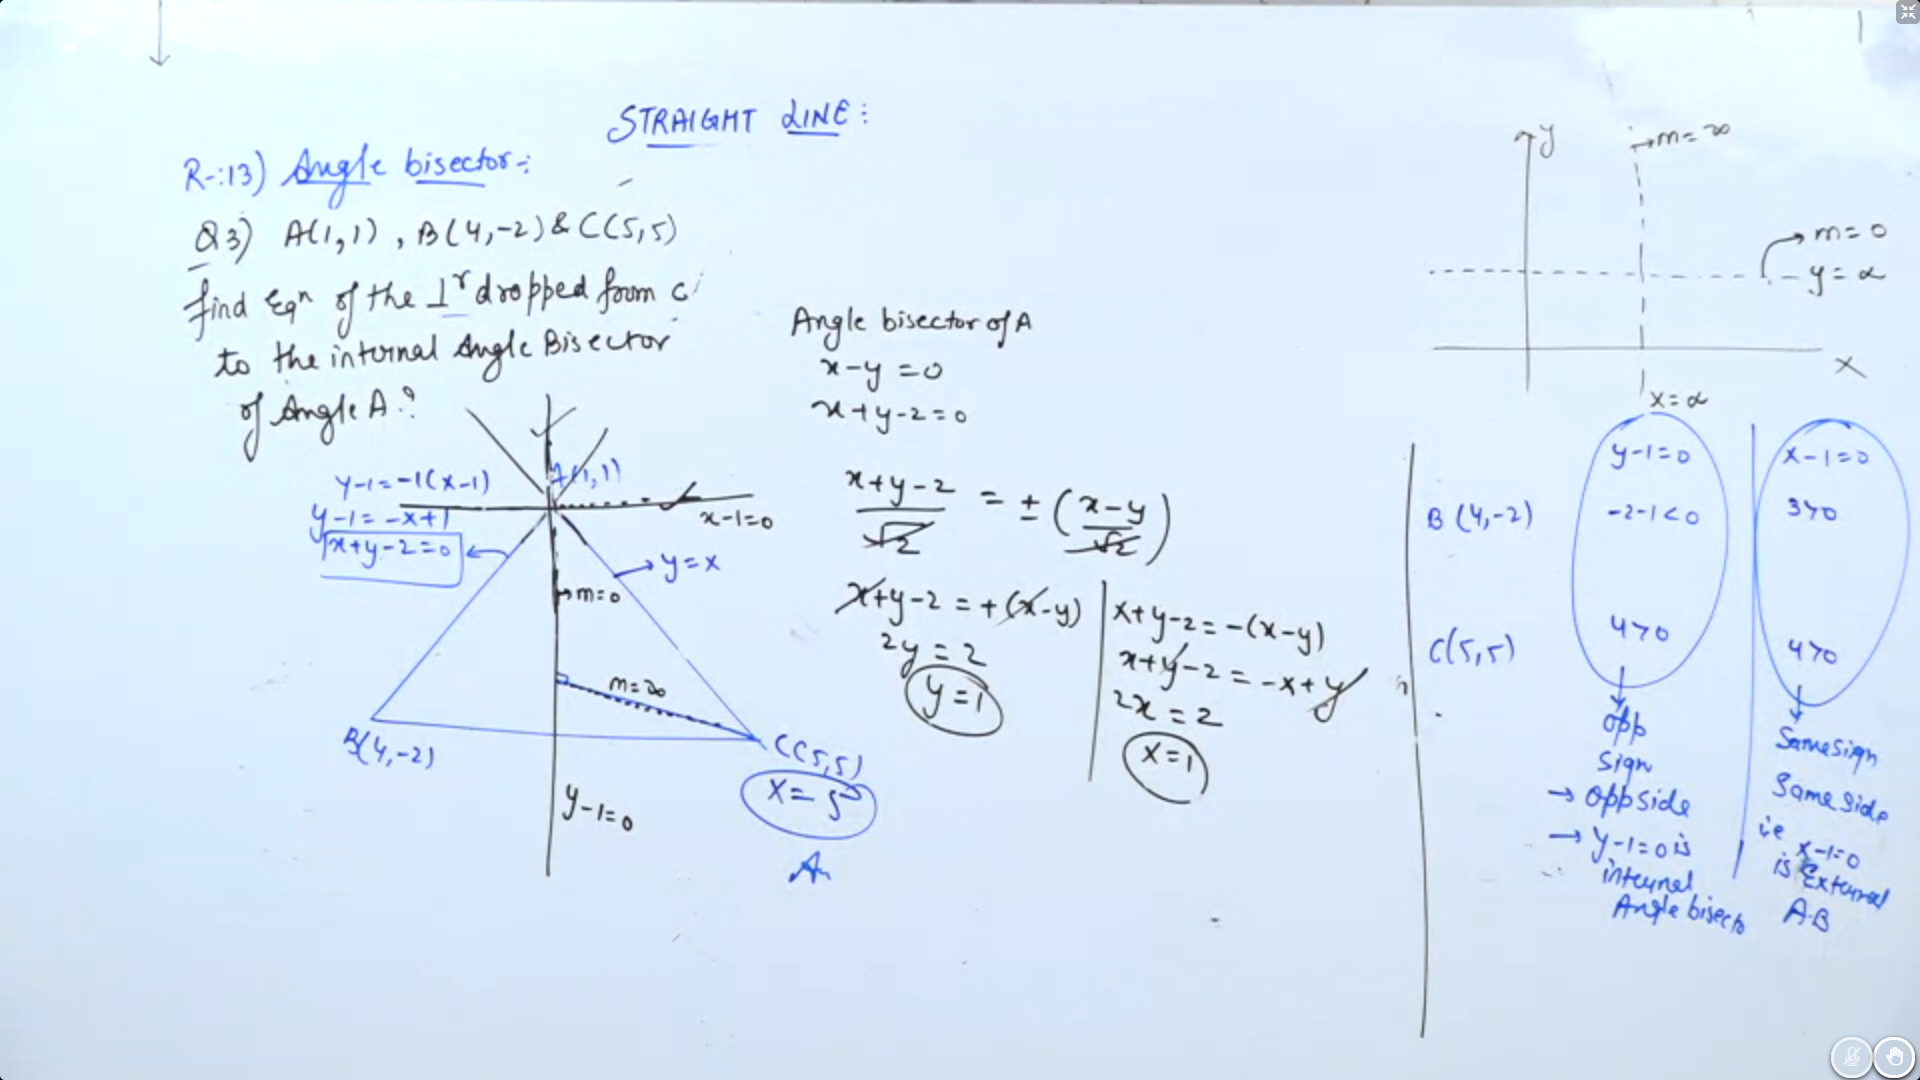 STRAIGHT LINE:
R-:13) Angle bisector:
Q3) A(1,1), B(4,-2) & C(5,5)
find Eqn of the ⊥r dropped from C
to the internal Angle Bisector
of Angle A?
y-1=-1(x-1)
y-1=-x+1
x+y-2=0
A(1,1)
x-1=0
y=x
m=0
m=∞
B(4,-2)
C(5,5)
x=5
y-1=0
Angle bisector of A
x-y=0
x+y-2=0
x+y-2/√2 = ±(x-y/√2)
x+y-2=+(x-y)
2y=2
y=1
x+y-2=-(x-y)
x+y-2=-x+y
2x=2
x=1
y
m=∞
m=0
y=α
x
x=α
y-1=0
x-1=0
B(4,-2)
-2-1<0
3>0
C(5,5)
4>0
4>0
opp
sign
→ opp side
→ y-1=0 is
internal
Angle bisecto
Same sign
Same side
ie x-1=0
is External
A.B